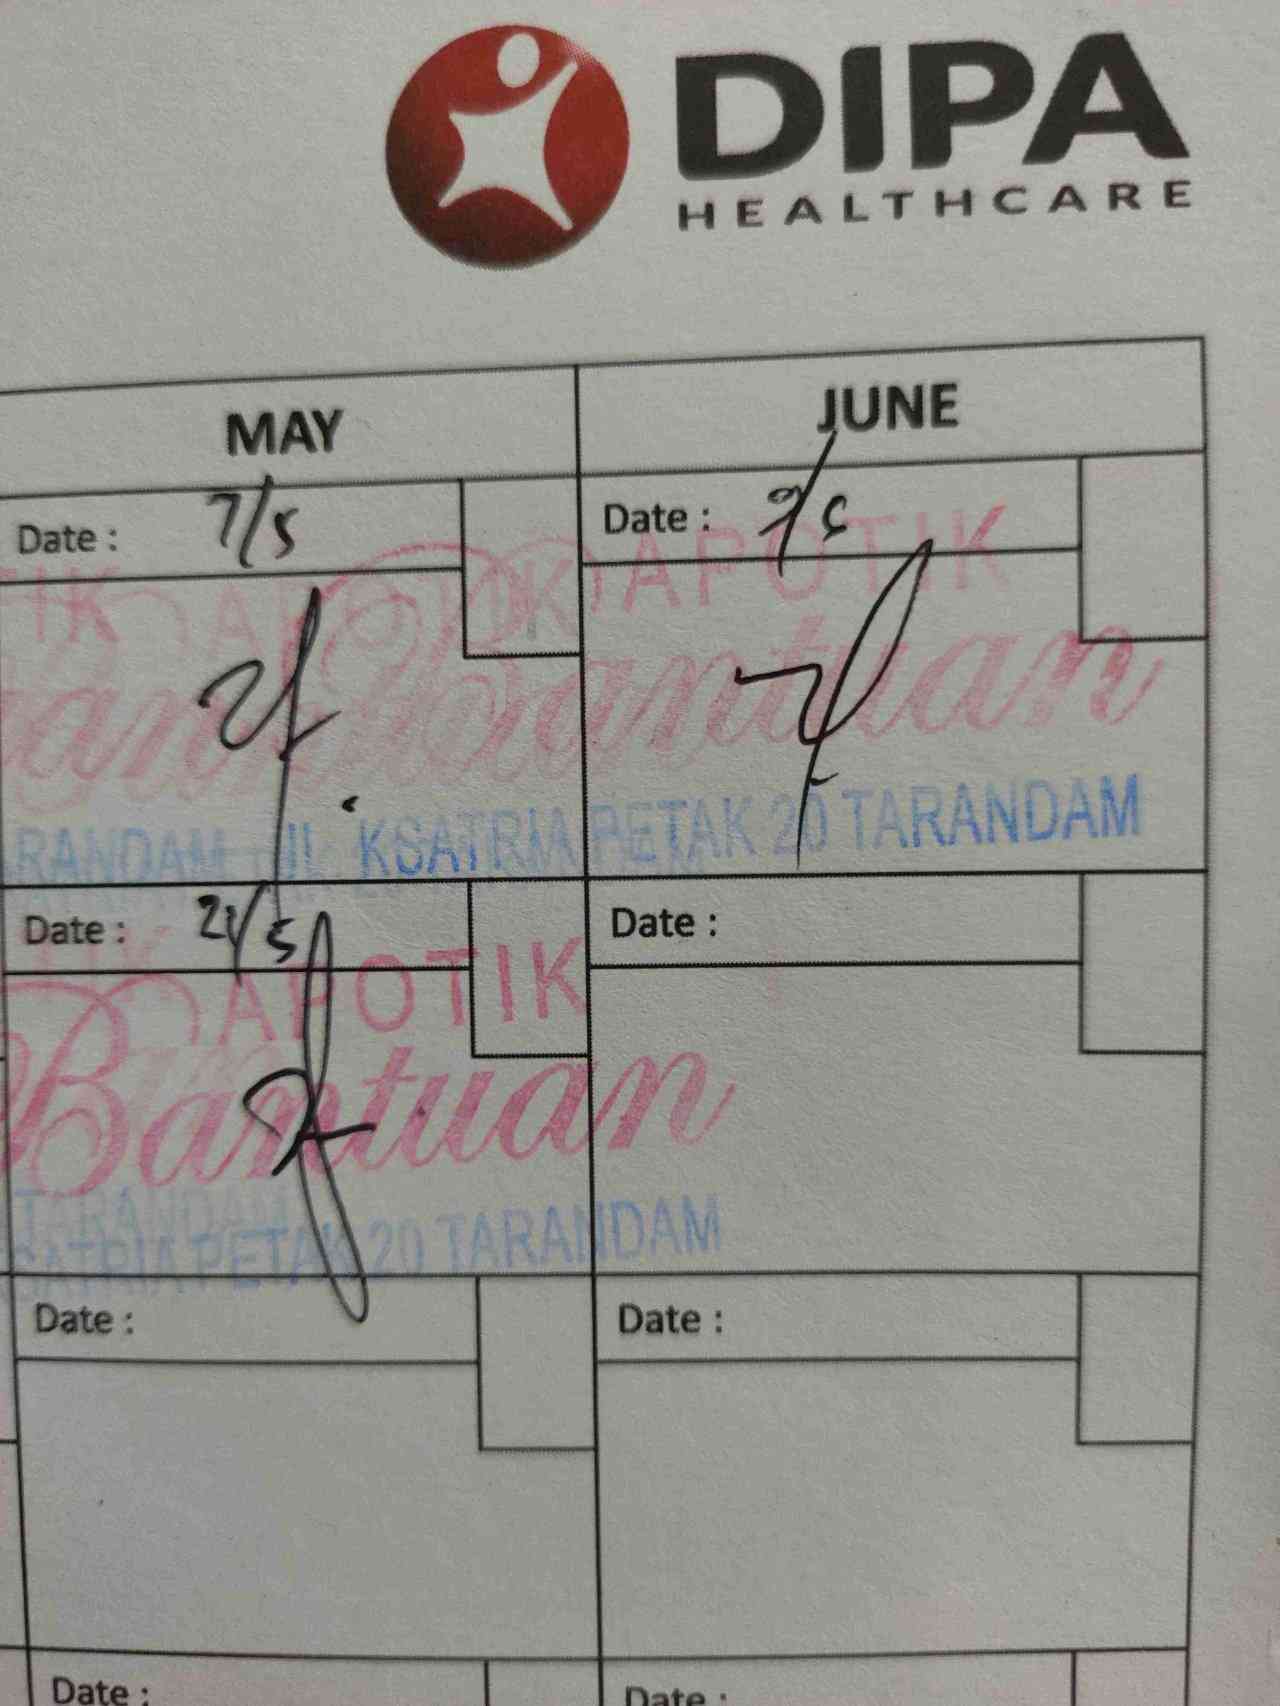 DIPA
HEALTHCARE
MAY
JUNE
Date : 7/5
Date :
APOTIK
APOTIK
Bantuan
RANDAM JL. KSATRIA PETAK 20 TARANDAM
Date : 21/5
Date :
APOTIK
Bantuan
TARANDAM
SATRIA PETAK 20 TARANDAM
Date :
Date :
Date :
Date :